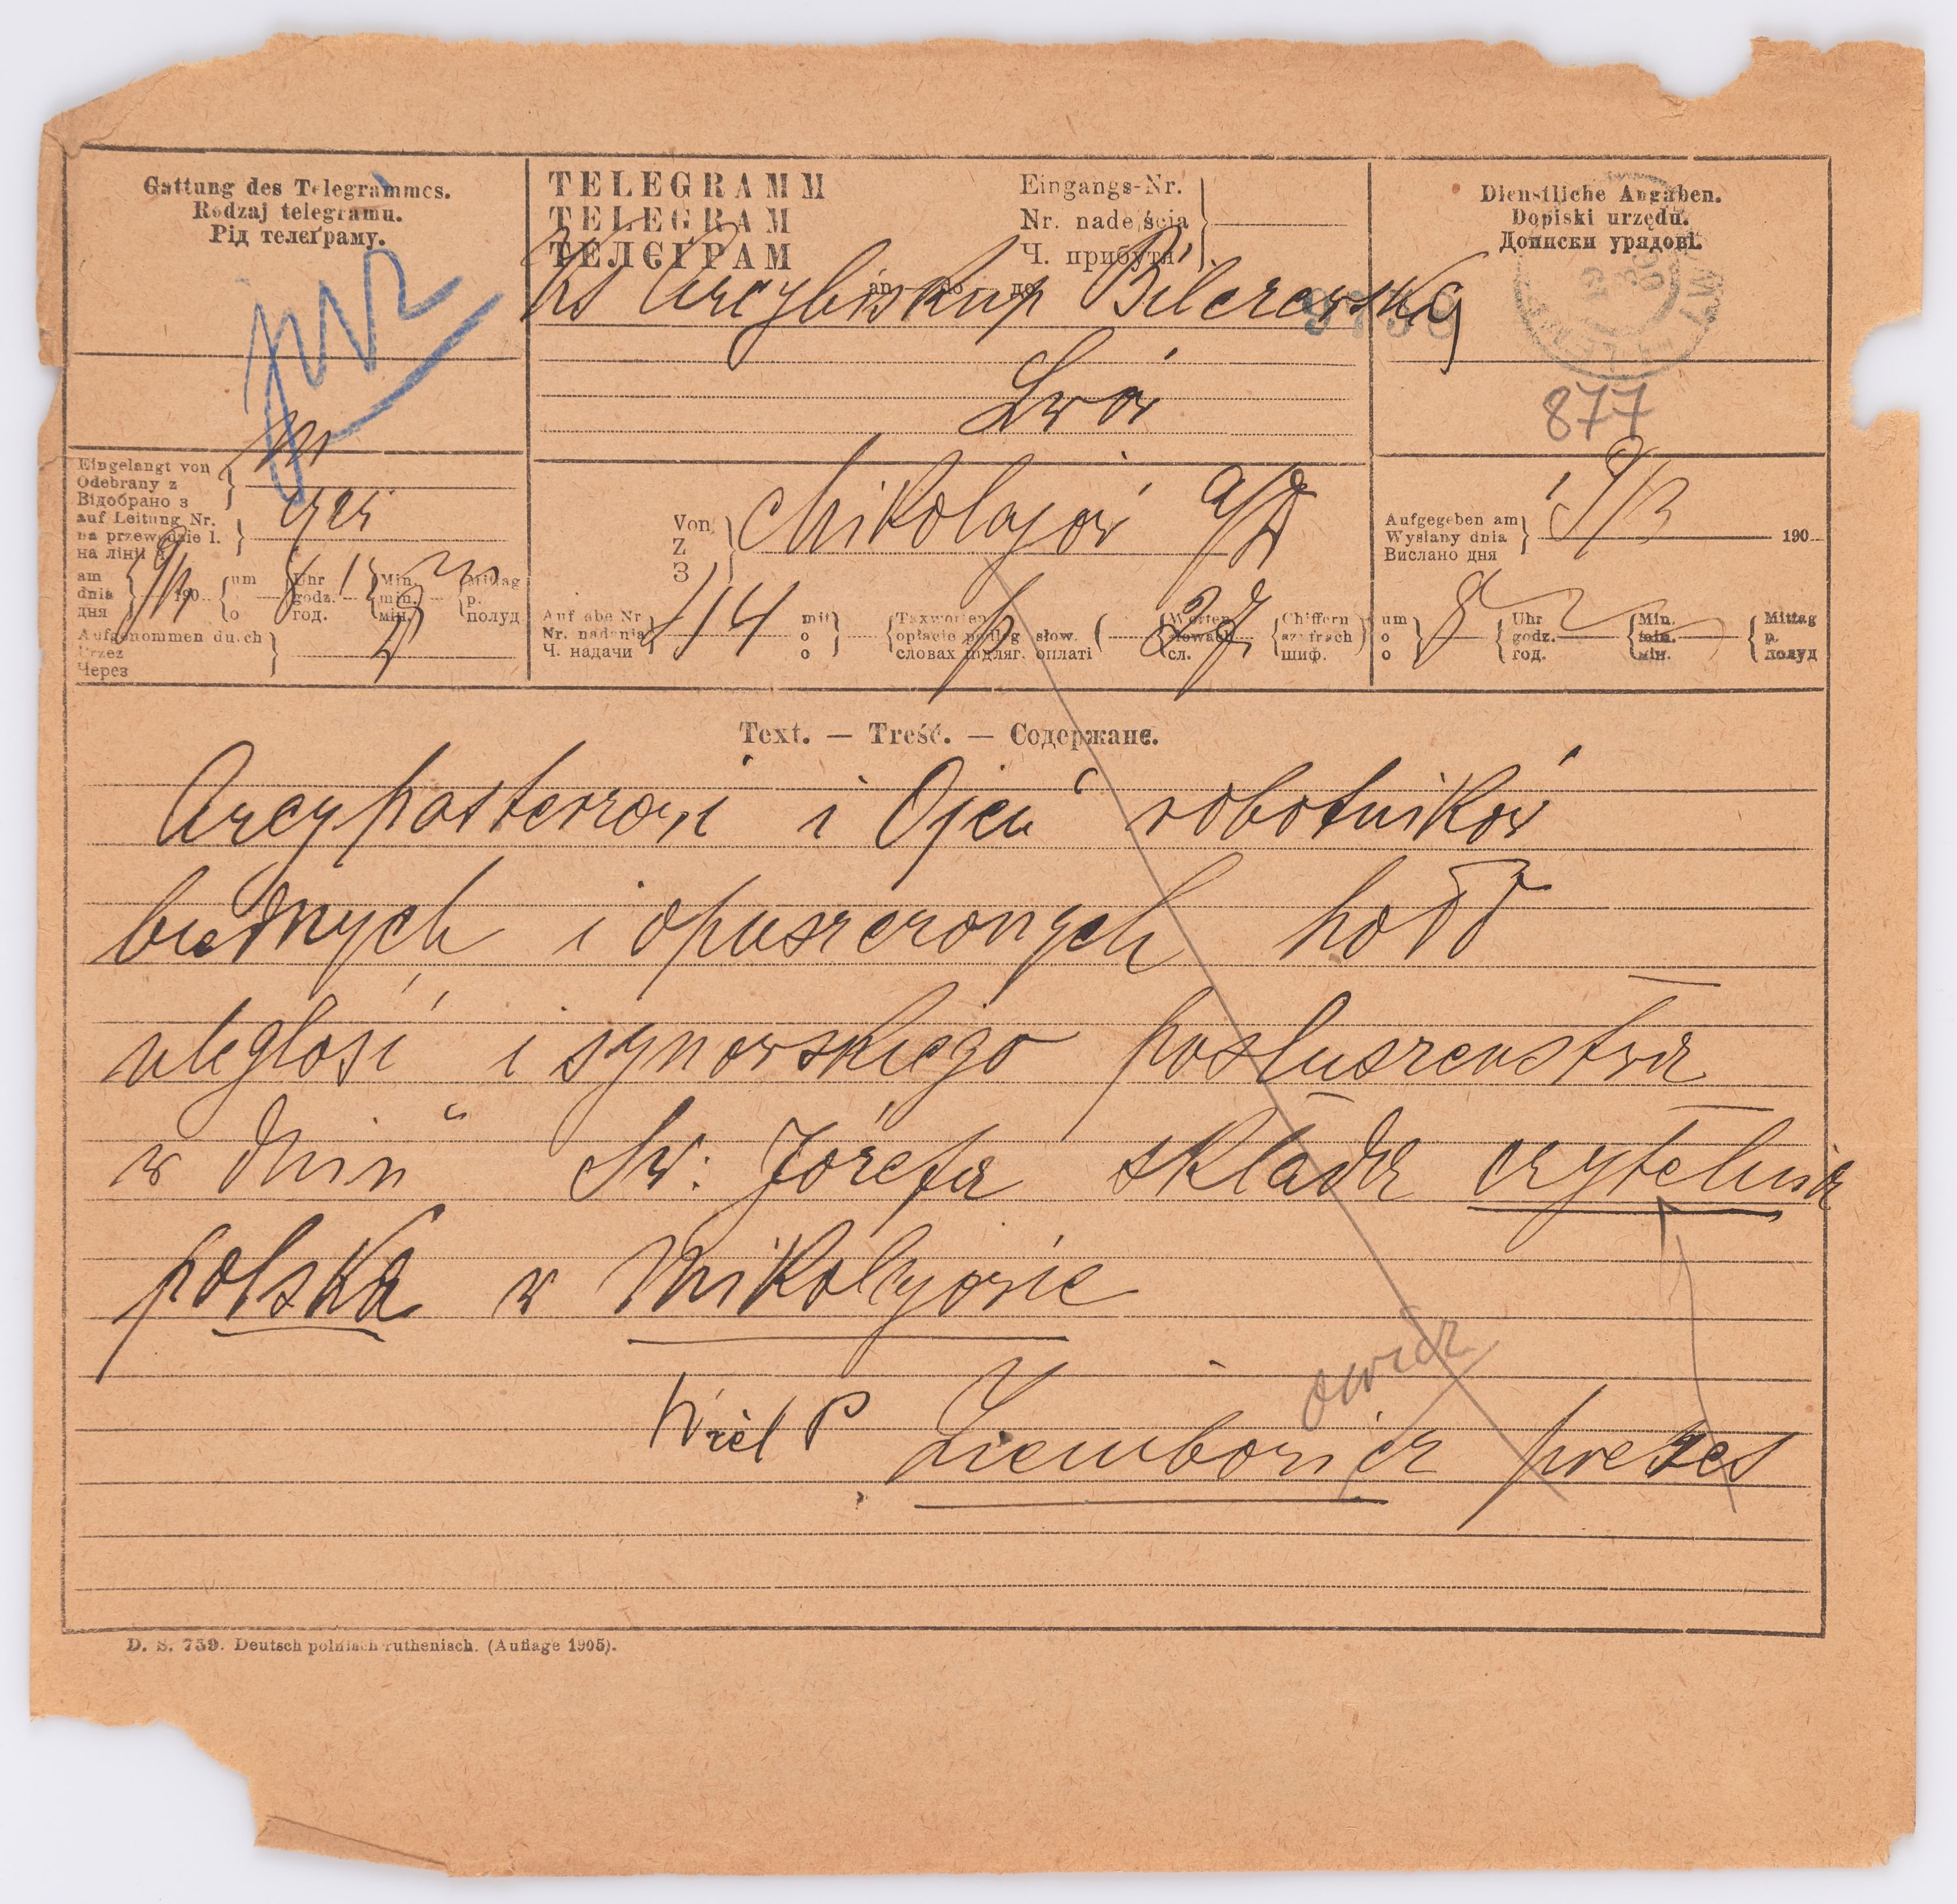 Gattung des Telegrammes.
Rodzaj telegramu.
Рід телєґраму.
już
TELEGRAMM
TELEGRAM
ТЕЛЄҐРАМ
Eingangs-Nr.
Nr. nadejścia
Ч. прибутя
an — do — до
Ks Arcybiskup Bilczewski
Lwów
9759
Dienstliche Angaben.
Dopiski urzędu.
Дописки урядові.
877
Eingelangt von
Odebrany z
Відобрано з
auf Leitung Nr.
na przewodzie l.
на лінії ч.
am
dnia
дня
190
um
o
Uhr
godz.
год.
Min.
min.
мін.
Mittag
p.
полуд
Aufgenommen durch
Przez
Через
Von
Z
З
Mikołajów a/D
Aufgabe Nr.
Nr. nadania
Ч. надачи
114
mit
o
o
Taxworten
opłacie podleg. słow.
словах підляг. оплаті
(
27
Worten
słowach
сл.
Chiffern
szyfrach
шиф.
)
Aufgegeben am
Wysłany dnia
Вислано дня
19/3
190
um
o
o
8
Uhr
godz.
год.
Min.
min.
мін.
Mittag
p.
полуд
Text. — Treść. — Содержанє.
Arcypasterzowi i Ojcu robotników
biednych i opuszczonych hołd
uległości i synowskiego posłuszeństwa
w dniu Św: Józefa składa czytelnia
polska w Mikołajowie
Wiel P Ziembowicz prezes
owicz
D. S. 759. Deutsch polnisch ruthenisch. (Auflage 1905).